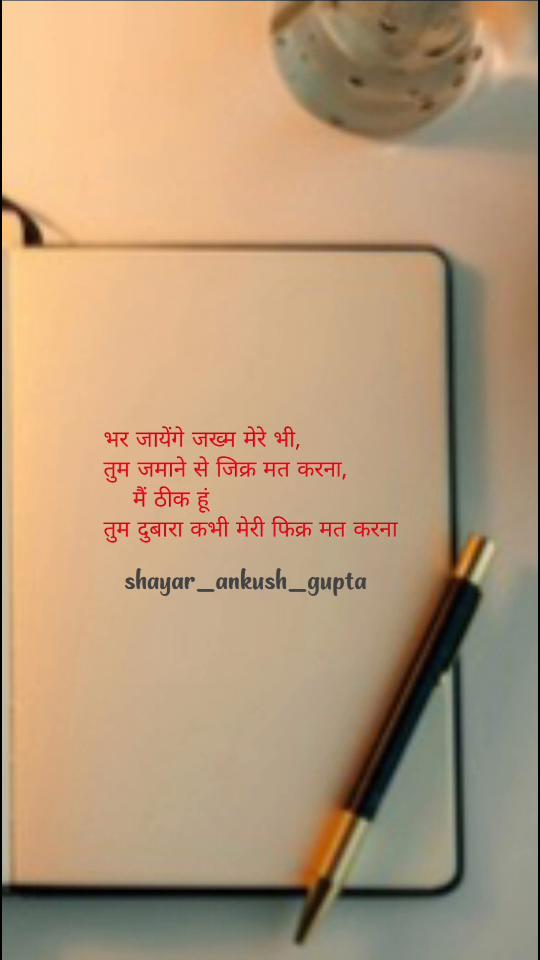 भर जायेंगे जख्म मेरे भी,
तुम जमाने से जिक्र मत करना,
मैं ठीक हूं
तुम दुबारा कभी मेरी फिक्र मत करना
shayar_ankush_gupta